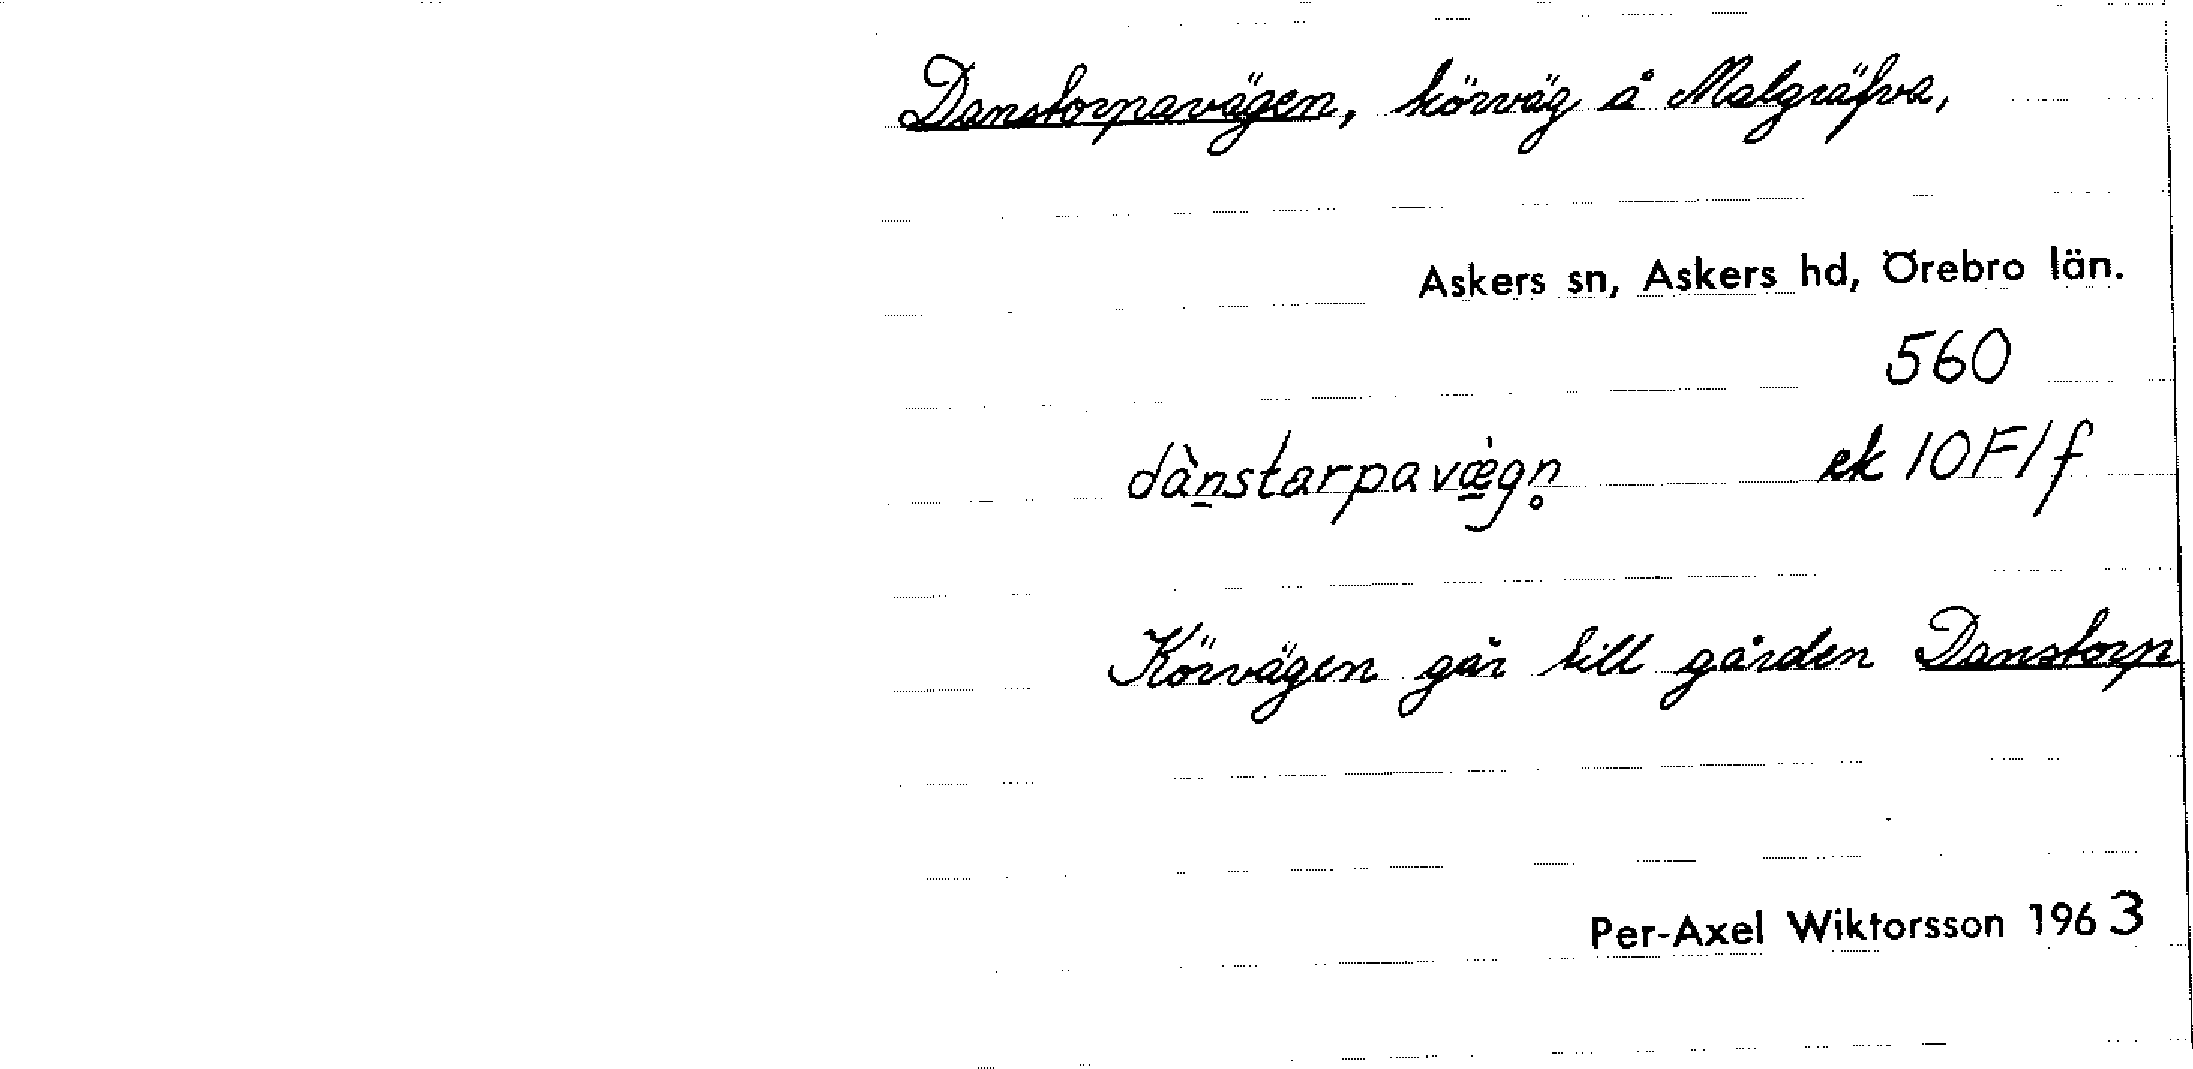 Danstorpavägen, körväg å Malgräfva,
Askers sn, Askers hd, Örebro län.
560
dànstarpavæ̀gn̥ ek 10F1f
Körvägen går till gården Danstorp
Per-Axel Wiktorsson 1963